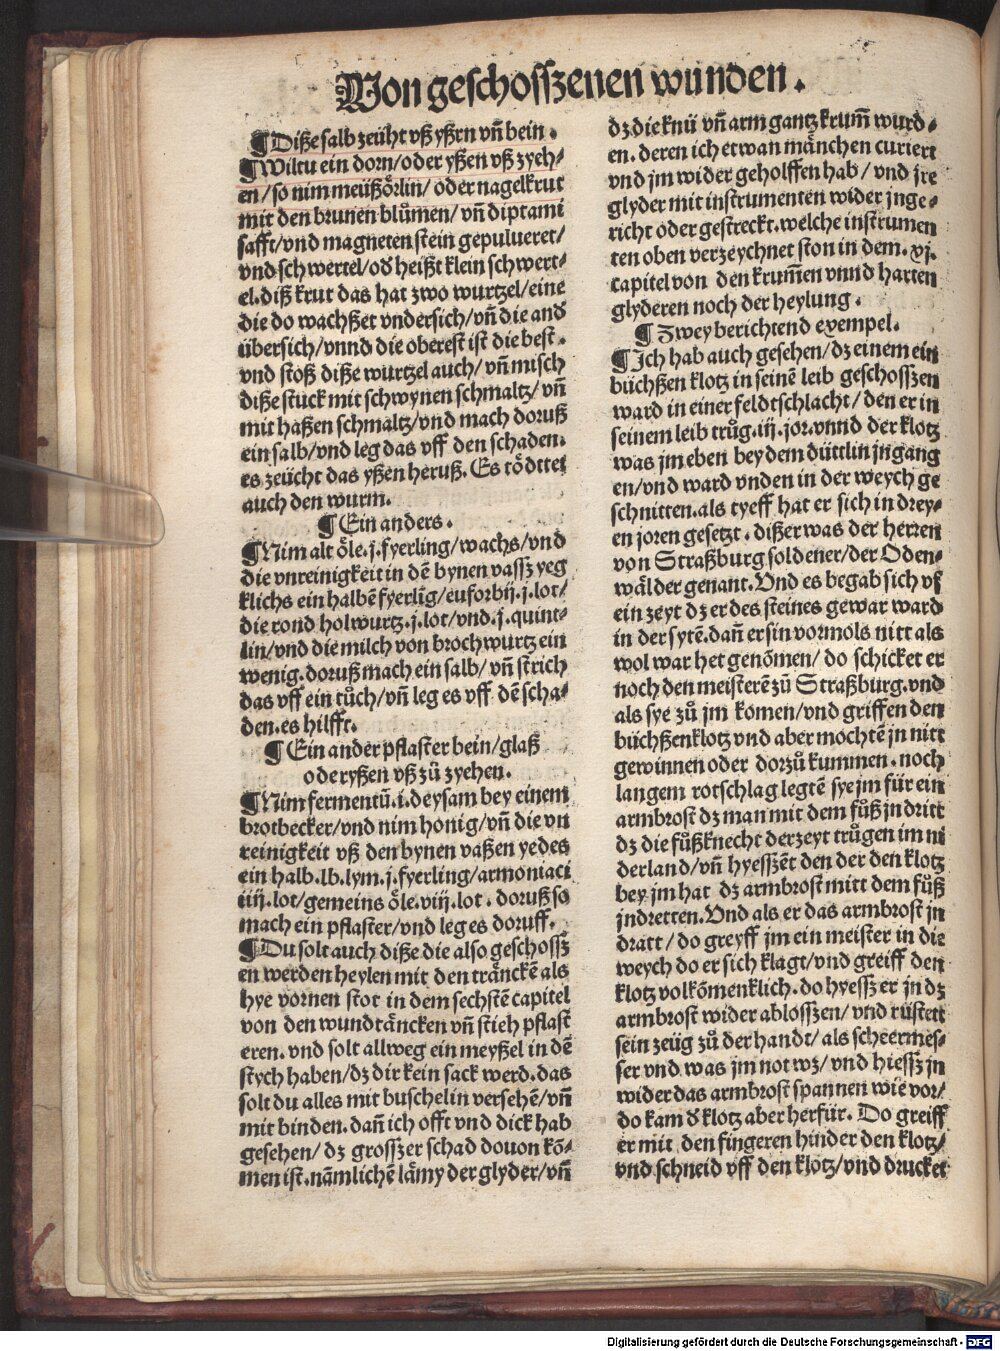 Von geschosszenen wunden.
¶Diße salb zeüht vß yßrn vñ bein.
¶Wiltu ein dorn/oder yßen vß zyeh/
en/so nim meüßörlin/oder nagelkrut
mit den brunen blůmen/vñ diptami
safft/vnd magneten stein gepulueret/
vnd schwertel/oď heißt klein schwert⸗
el.diß krut das hat zwo wurtzel/eine
die do wachßet vndersich/vñ die anď
übersich/vnnd die oberest ist die best.
vnd stoß diße wurtzel auch/vñ misch
diße stuck mit schwynen schmaltz/vñ
mit haßen schmaltz/vnd mach doruß
ein salb/vnd leg das vff den schaden.
es zeücht das yßen heruß. Es tödttet
auch den wurm.
¶Ein anders.
¶Nim alt öle.j.fyerling/wachs/vnd
die vnreinigkeit in dē bynen vassz yeg
klichs ein halbē fyerlīg/euforbij.j.lot/
die rond holwurtz.j.lot/vnd.j.quint⸗
lin/vnd die milch von brochwurtz ein
wenig.doruß mach ein salb/vñ strich
das vff ein tůch/vñ leg es vff dē scha⸗
den.es hilfft.
¶Ein ander pflaster bein/glaß
oder yßen vß zů zyehen.
¶Nim fermentū.i.deysam bey einem
brotbecker/vnd nim honig/vñ die vn
reinigkeit vß den bynen vaßen yedes
ein halb.lb.lym.j.fyerling/armoniaci
iiij.lot/gemeins öle.viij.lot. doruß so
mach ein pflaster/vnd leg es doruff.
¶Du solt auch diße die also geschossz
en werden heylen mit den träncke̅ als
hye vornen stot in dem sechstē capitel
von den wundtäncken vñ stich pflast
eren.vnd solt allweg ein meyßel in dē
stych haben/dz dir kein sack werd.das
solt du alles mit buschelin versehē/vñ
mit binden.dañ ich offt vnd dick hab
gesehen/dz grosszer schad douon kō⸗
men ist.nämlichē lämy der glyder/vñ
dz die knü vñ arm gantz krum̄ wurd⸗
en. deren ich etwan mänchen curiert
vnd jm wider geholffen hab/vnd jre
glyder mit instrumenten wider jnge⸗
richt oder gestreckt.welche instrumen
ten oben verzeychnet ston in dem.xj.
capitel von den krum̄en vnnd harten
glyderen noch der heylung.
¶Zwey berichtend exempel.
¶Ich hab auch gesehen/dz einem ein
büchßen klotz in seinē leib geschosszen
ward in einer feldtschlacht/den er in
seinem leib trůg.iij.jor.vnnd der klotz
was jm eben bey dem düttlin jngang
en/vnd ward vnden in der weych ge
schnitten.als tyeff hat er sich in drey⸗
en joren gesetzt.dißer was der herren
von Straßburg soldener/der Oden⸗
wälder genant.Vnd es begab sich vf
ein zeyt dz er des steines gewar ward
in der sytē.dañ er sin vormols nitt als
wol war het genōmen/do schicket er
noch den meisterē zů Straßburg.vnd
als sye zů jm komen/vnd griffen den
büchßenklotz vnd aber mochtē jn nitt
gewinnen oder dorzů kummen.noch
langem rotschlag legtē sye jm für ein
armbrost dz man mit dem fůß jn dritt
dz die fůßknecht der zeyt trůgen im ni
derland/vñ hyesszēt den der den klotz
bey jm hat dz armbrost mitt dem fůß
jndretten.Vnd als er das armbrost jn
dratt/do greyff jm ein meister in die
weych do er sich klagt/vnd greiff den
klotz volkōmenklich.do hyessz er jn dz
armbrost wider ablosszen/vnd rüstett
sein zeüg zů der handt/als scheermes⸗
ser vnd was jm not wz/vnd hiessz jn
wider das armbrost spannen wie vor/
do kam ď klotz aber herfür. Do greiff
er mit den fingeren hinder den klotz/
vnd schneid vff den klotz/vnd drucket
Digitalisierung gefördert durch die Deutsche Forschungsgemeinschaft - DFG